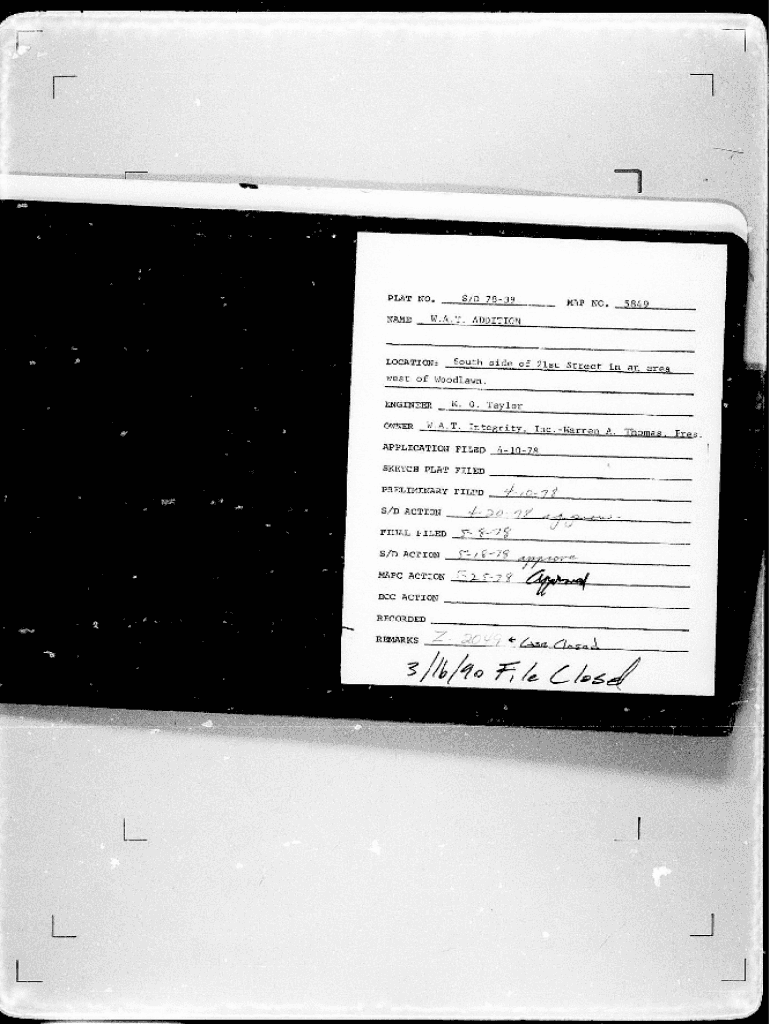 PLAT NO. S/D 78-39 MAP NO. 5849
NAME W.A.T. ADDITION
LOCATION: South side of 21st Street in an area
west of Woodlawn.
ENGINEER K. O. Taylor
OWNER W.A.T. Integrity, Inc.-Warren A. Thomas, Pres.
APPLICATION FILED 4-10-78
SKETCH PLAT FILED
PRELIMINARY FILED 4-10-78
S/D ACTION 4-20-78
FINAL FILED 5-8-78
S/D ACTION 5-18-78 approve
MAPC ACTION 5-25-78 Approved
BCC ACTION
RECORDED
REMARKS Z-2049 ← Case Closed
3/16/90 File Closed